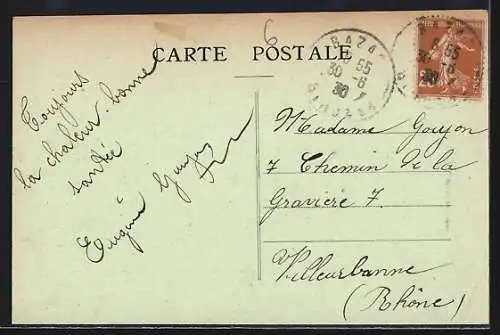 6
CARTE POSTALE
BAZAS
8 55
30 -6
30
GIRONDE
Toujours
la chaleur bonne
santée
Eugénie Goujon
Madame Goujon
7 Chemin de la
Gravière 7.
Villeurbanne
(Rhône)